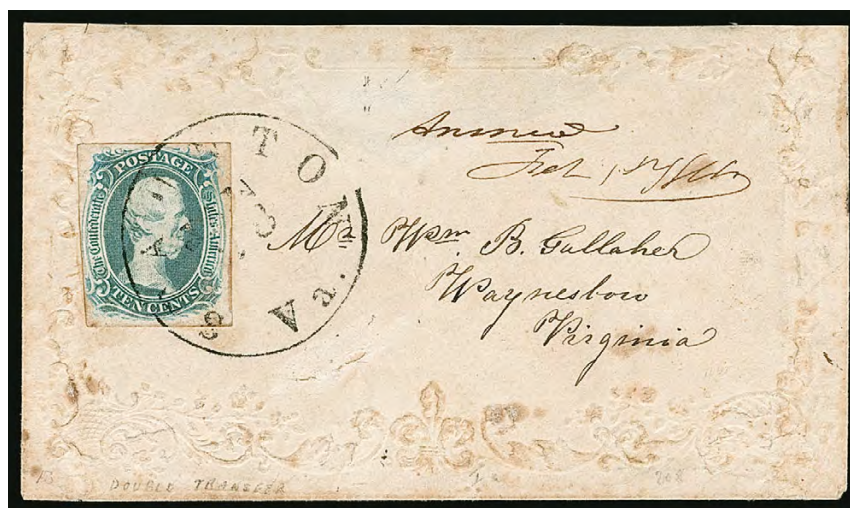 POSTAGE
The Confederate States of America
TEN CENTS
STAUNTON
Va.
Answered
Feb
Mr Wm B. Gallaher
Waynesboro
Virginia
DOUBLE TRANSFER